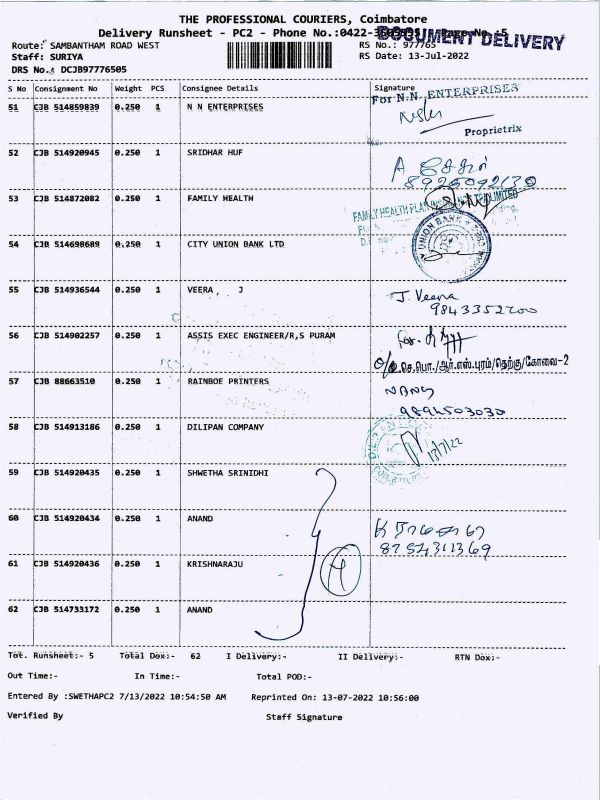 THE PROFESSIONAL COURIERS, Coimbatore
Delivery Runsheet - PC2 - Phone No.:0422- Page No.:5
DOCUMENT DELIVERY
Route: SAMBANTHAM ROAD WEST RS No.: 977765
Staff: SURIYA RS Date: 13-Jul-2022
DRS No.: DCJB97776505
S No Consignment No Weight PCS Consignee Details Signature
51 CJB 514859839 0.250 1 N N ENTERPRISES
For N.N. ENTERPRISES
Proprietrix
52 CJB 514920945 0.250 1 SRIDHAR HUF
53 CJB 514872082 0.250 1 FAMILY HEALTH
FAMILY HEALTH PLAN LIMITED
54 CJB 514698689 0.250 1 CITY UNION BANK LTD
UNION BANK
55 CJB 514936544 0.250 1 VEERA, . J
J. Veera
9843352200
56 CJB 514902257 0.250 1 ASSIS EXEC ENGINEER/R,S PURAM
for.
செ.பொ./ஆர்.எஸ்.புரம்/தெற்கு/கோவை-2
57 CJB 88663510 0.250 1 RAINBOE PRINTERS
9894503030
58 CJB 514913186 0.250 1 DILIPAN COMPANY
13/7/22
59 CJB 514920435 0.250 1 SHWETHA SRINIDHI
60 CJB 514920434 0.250 1 ANAND
8754311369
61 CJB 514920436 0.250 1 KRISHNARAJU
4
62 CJB 514733172 0.250 1 ANAND
Tot. Runsheet:- 5 Total Dox:- 62 I Delivery:- II Delivery:- RTN Dox:-
Out Time:- In Time:- Total POD:-
Entered By :SWETHAPC2 7/13/2022 10:54:50 AM Reprinted On: 13-07-2022 10:56:00
Verified By Staff Signature